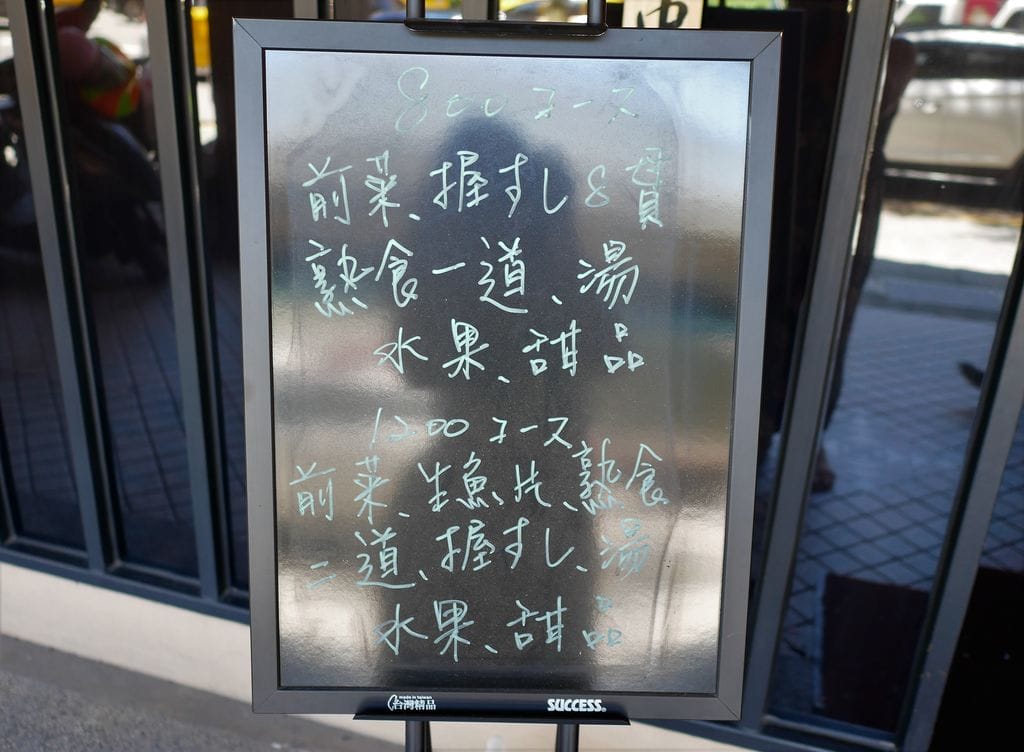 800コース
前菜、握すし8貫
熟食一道、湯
水果、甜品
1200コース
前菜、生魚片、熟食
二道、握すし、湯
水果、甜品
made in taiwan
台灣精品
SUCCESS®